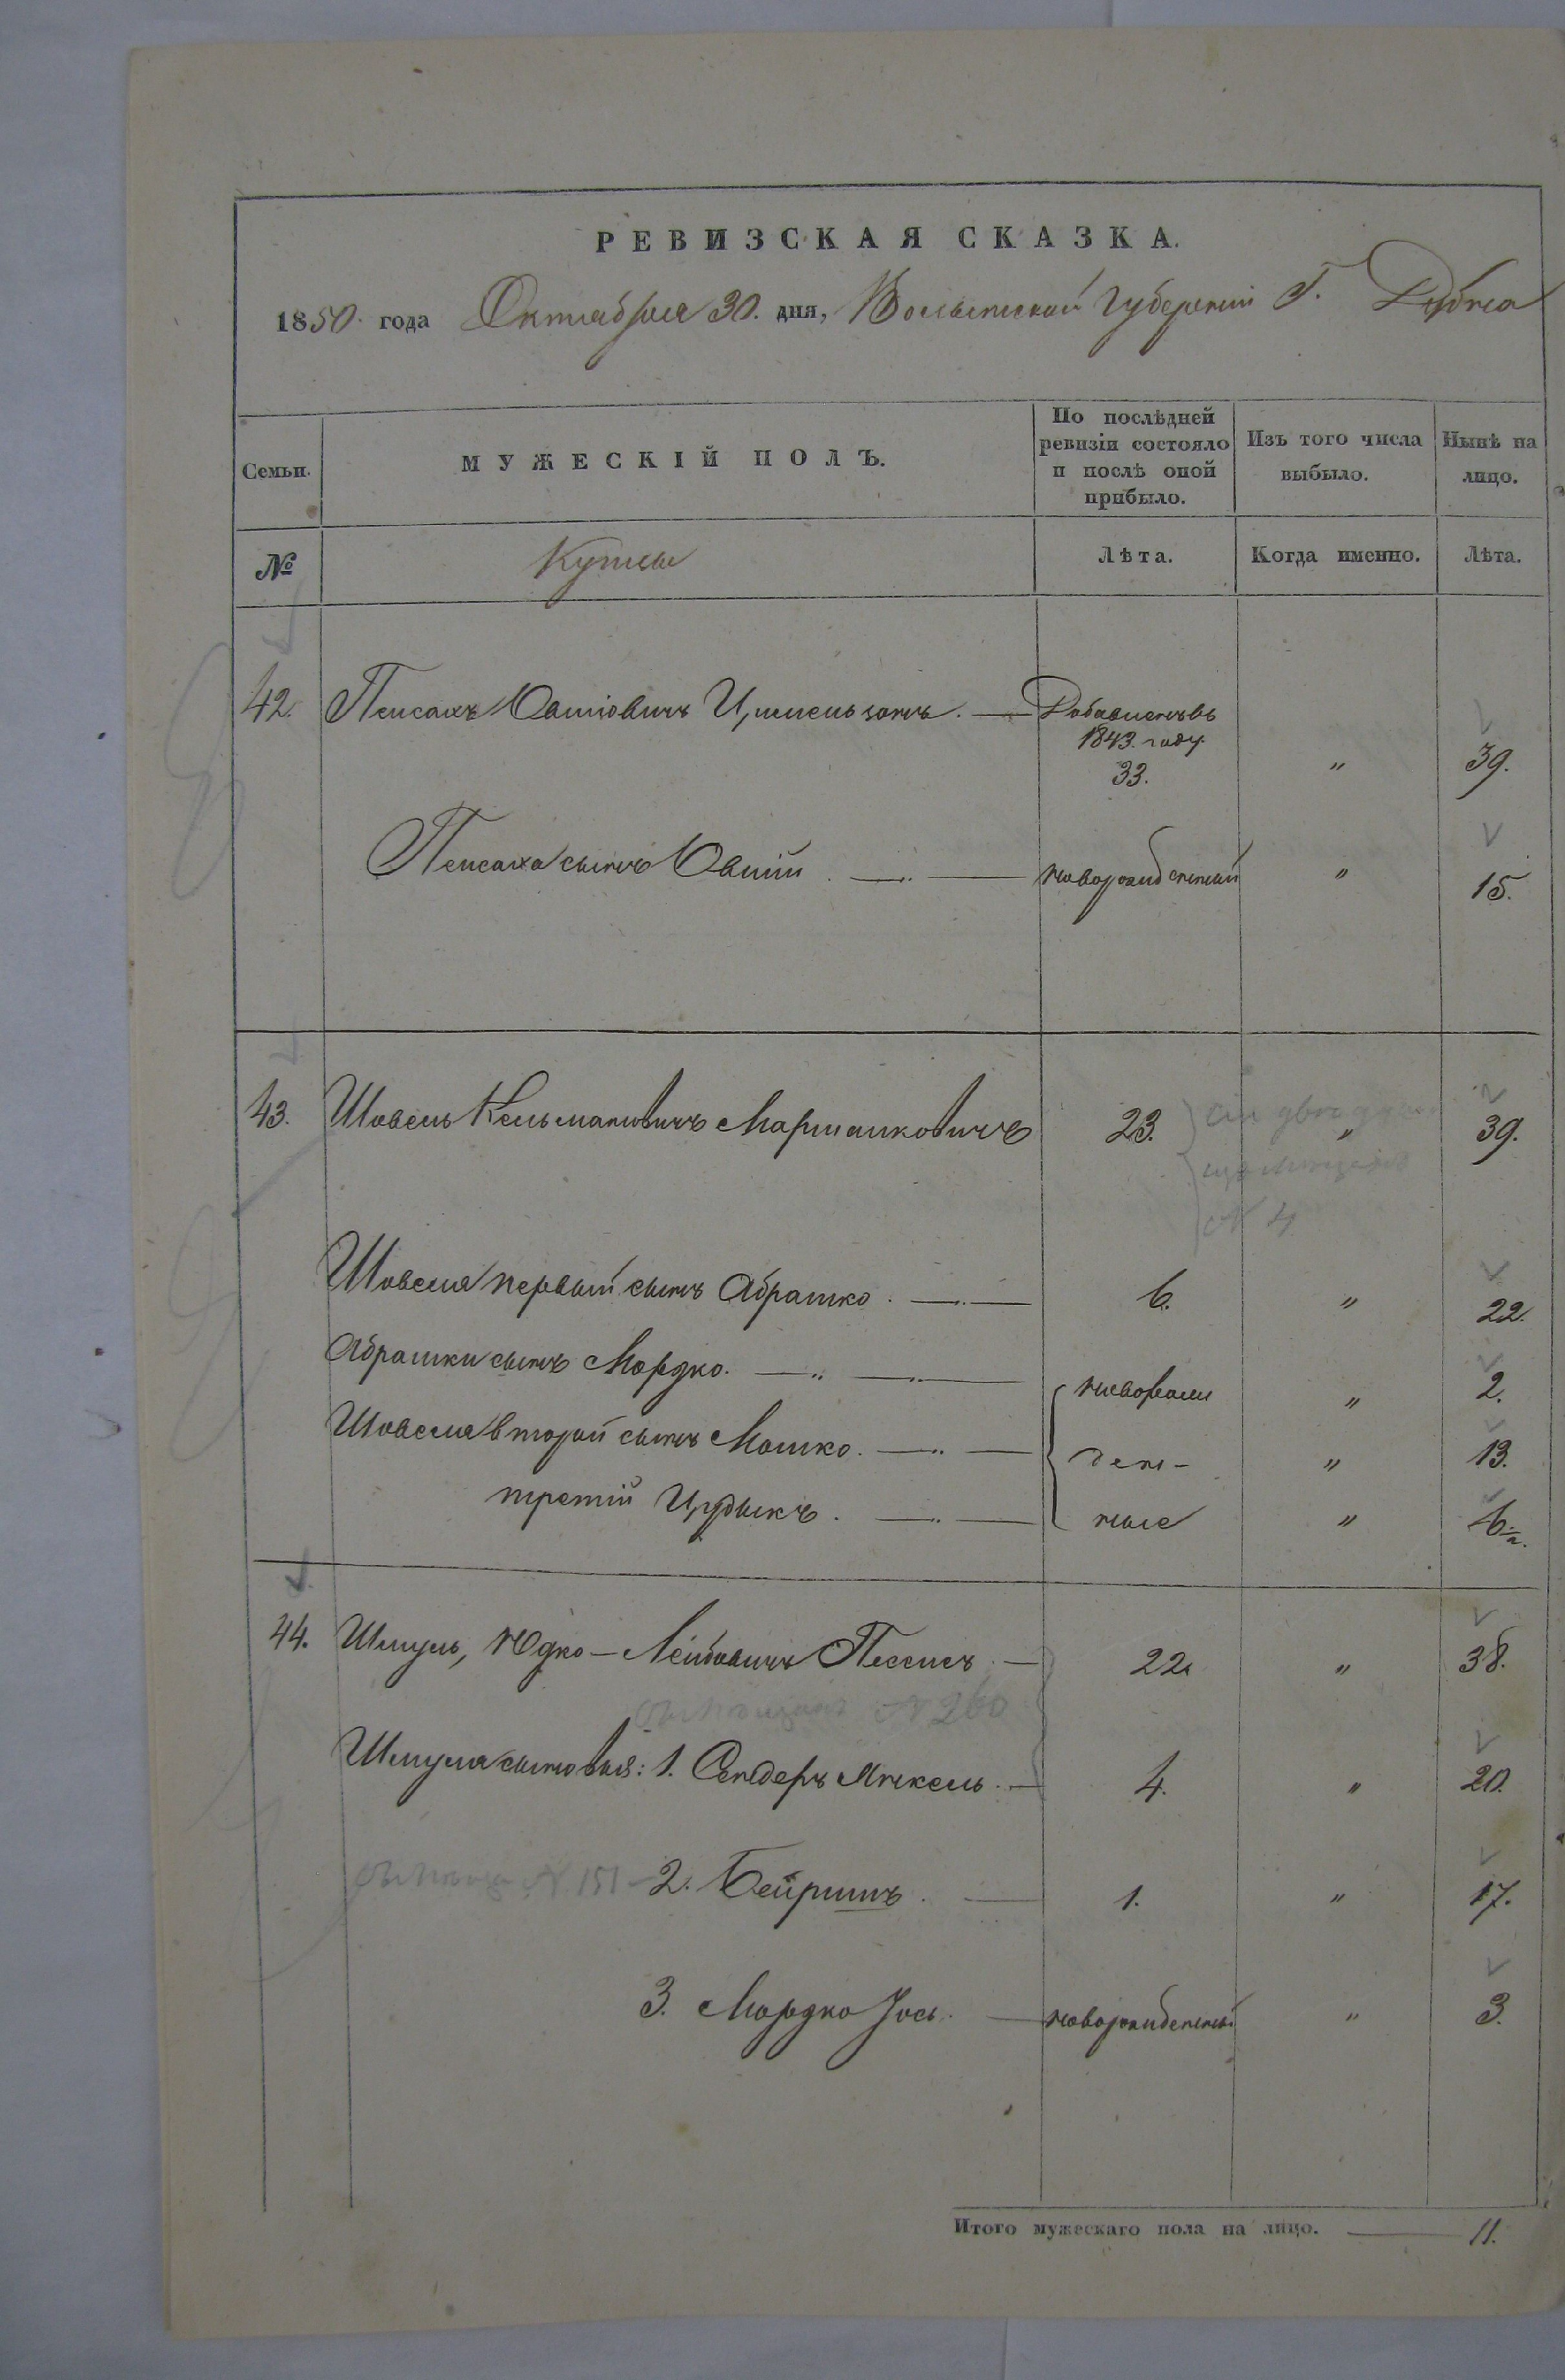 РЕВИЗСКАЯ СКАЗКА.
1850 года Октября 30. дня, Волынской Губернии Г. Дубна
Семьи. МУЖЕСКІЙ ПОЛЪ. По послѣдней ревизіи состояло и послѣ оной прибыло. Изъ того числа выбыло. Нынѣ на лицо.
№ Купцы Лѣта. Когда именно. Лѣта.
42. Пейсахъ Овшіовичъ Цимельзонъ. — Добавленъ въ
1843. году.
33. " 39.
Пейсаха сынъ Овшій — новорожденный " 15.
43. Шовель Кельмановичъ Маршалковичъ 23. " 39.
№ 4
Шовеля первый сынъ Абрашко. — 6. " 22.
Абрашки сынъ Мордко. — новорож " 2.
Шовеля второй сынъ Мошко. — ден- " 13.
третій Цудыкъ. — ные " 6 ½.
44. Шмуль, Юдко-Лейбовичъ Пессисъ — 22. " 38.
№ 260
Шмуля сыновья: 1. Сендеръ Янкель. — 4. " 20.
№ 151 2. Бейришъ. — 1. " 17.
3. Мордко Іось. — новорожденный " 3.
Итого мужескаго пола на лицо. — 11.